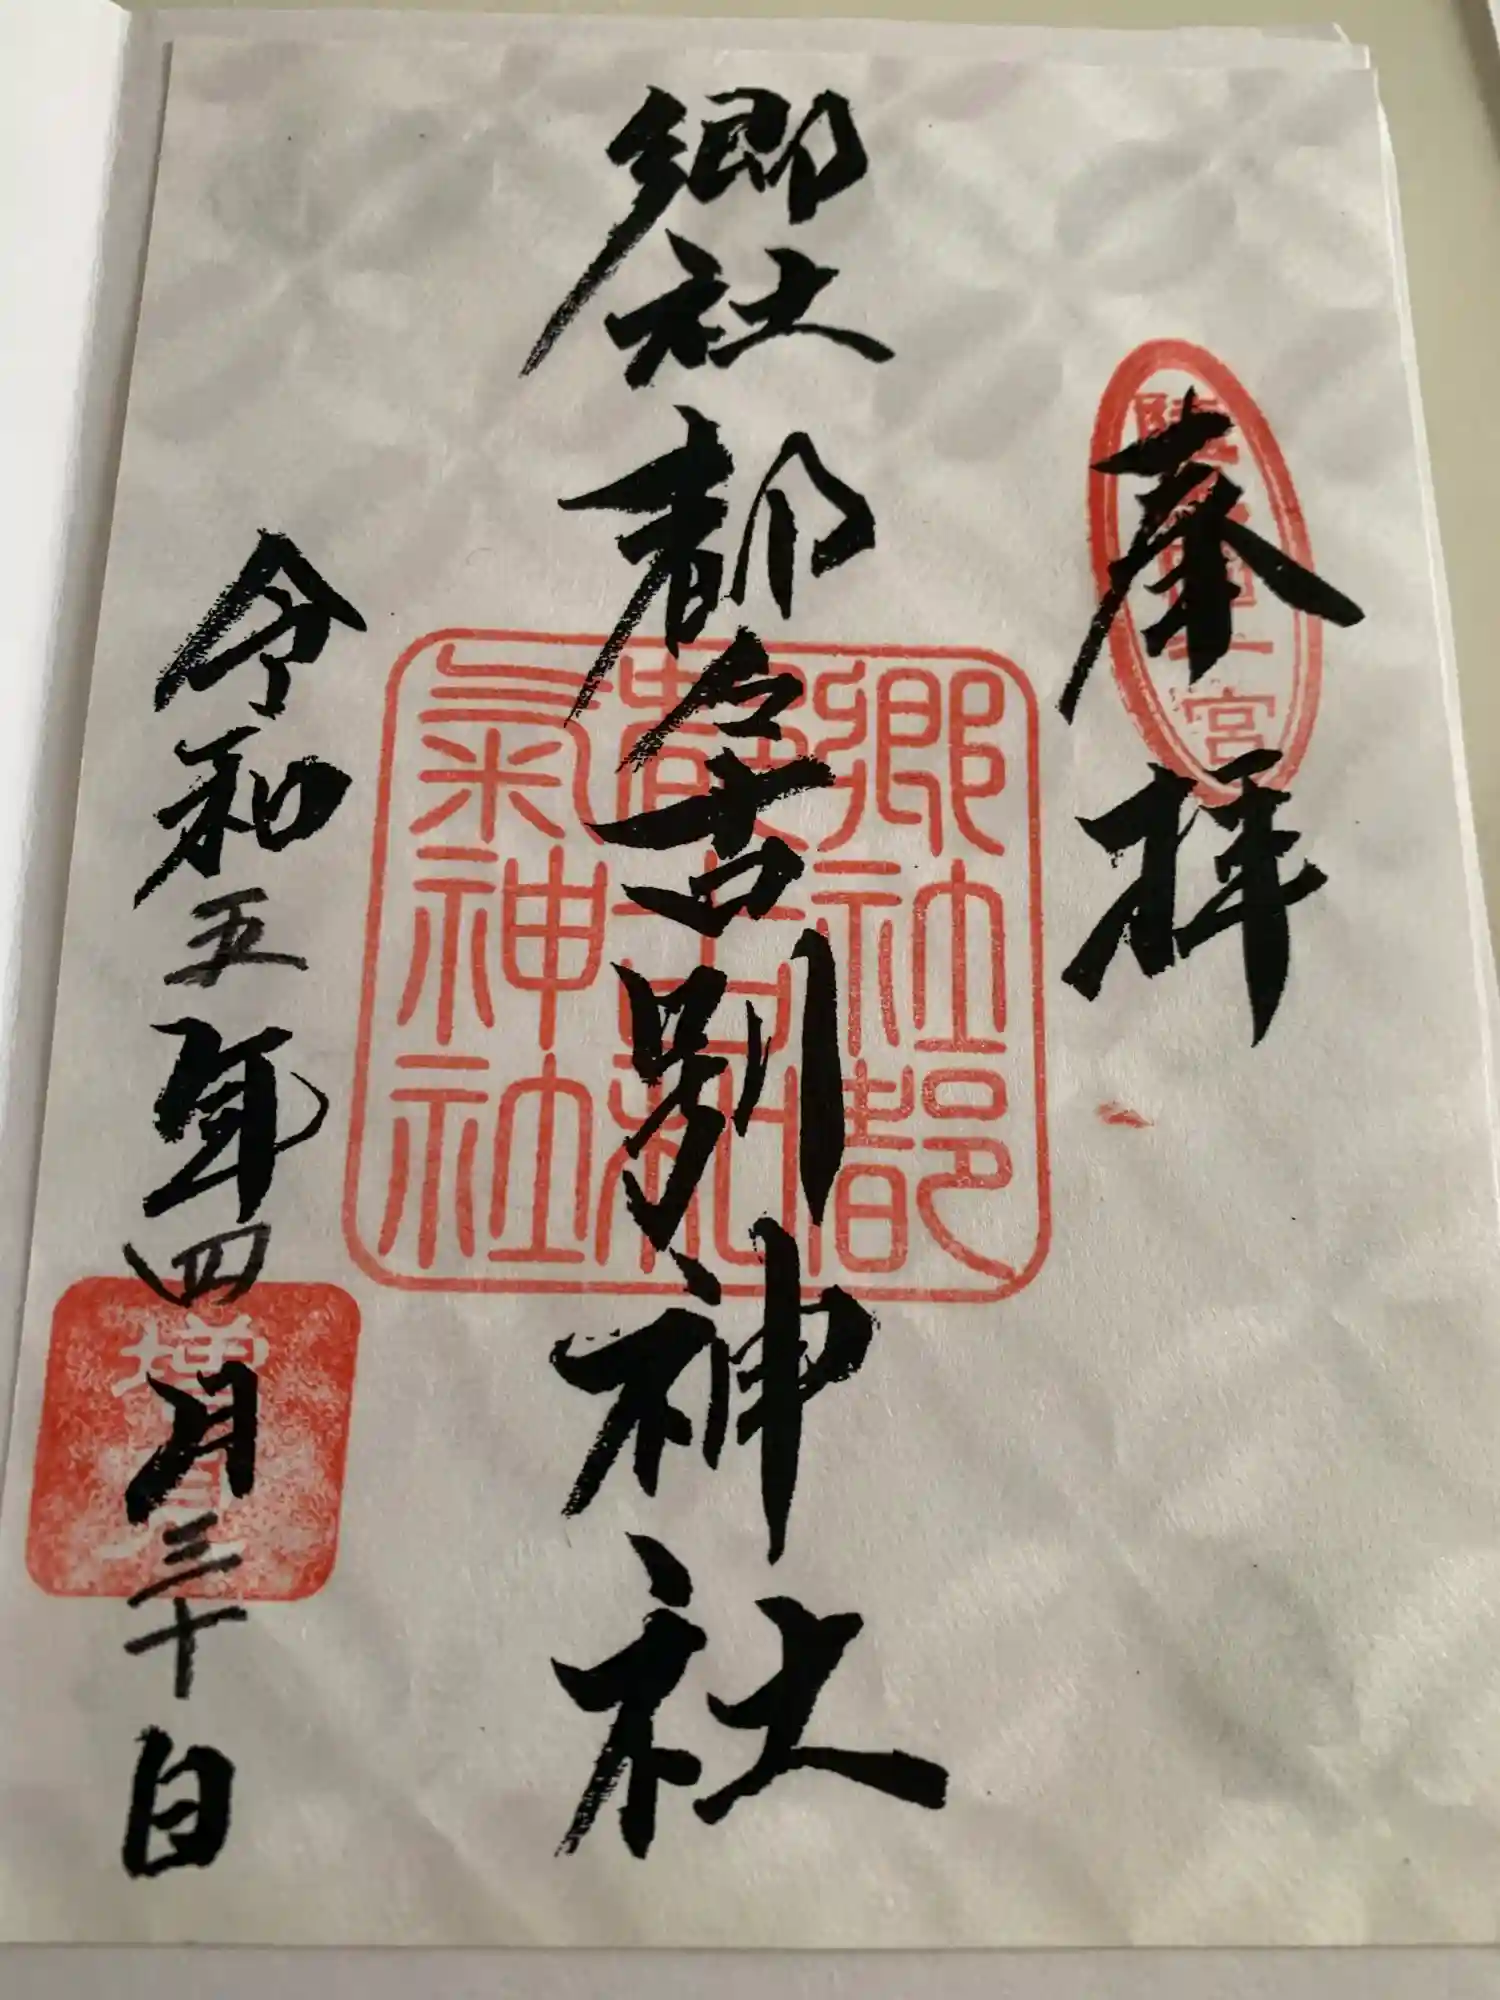 陸奥國一宮
奉拝
郷社都々古別神社
郷社都
都古和
氣神社
令和五年四月三十日